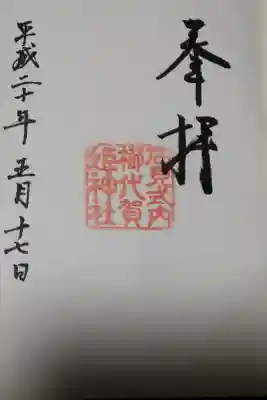 奉拝
石見式内
櫛代賀
姫神社
平成二十年五月十七日